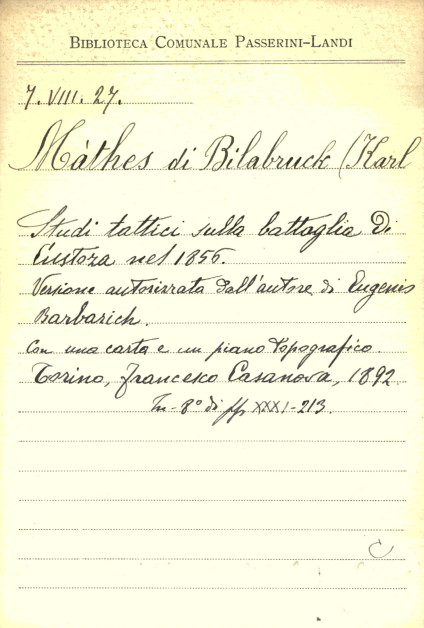 BIBLIOTECA COMUNALE PASSERINI-LANDI
7. VIII. 27.
Màthes di Bilabruck (Karl
Studi tattici sulla battaglia di
Custoza nel 1866.
Versione autorizzata dall'autore di Eugenio
Barbarich.
Con una carta e un piano topografico.
Torino, Francesco Casanova, 1892.
In-8° di pp XXXI-213.
C